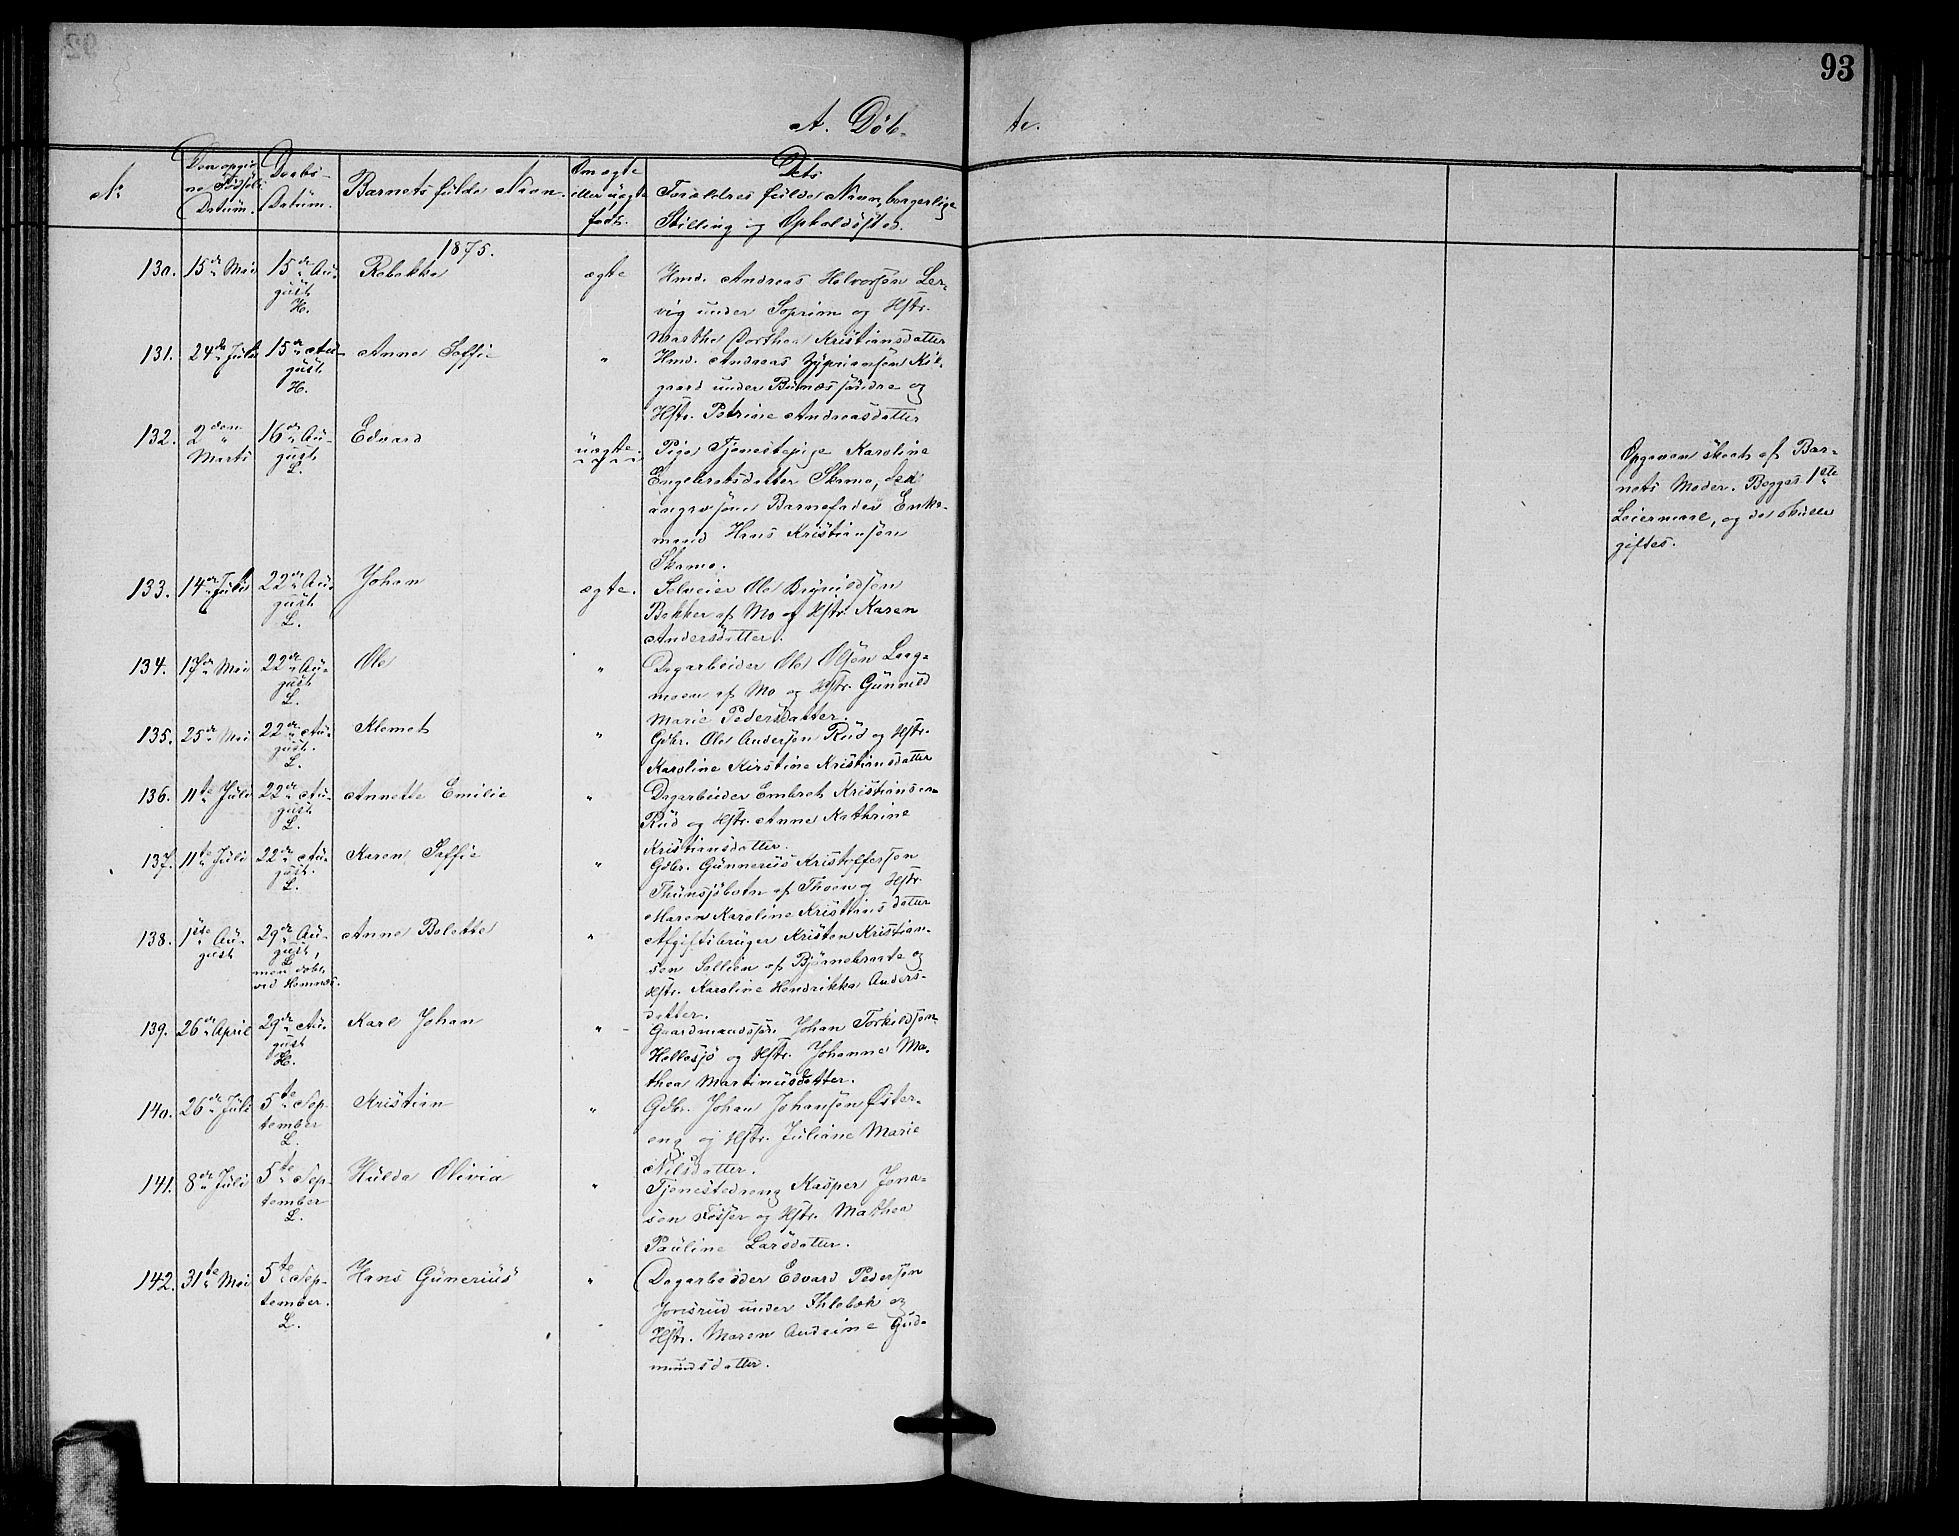 93
A. Døb-
te.
No
Den opgiv
ne Fødsels
Datum.
Daabs-
Datum.
Barnets fulde Navn.
Om ægte
eller uægte
født.
Dets
Forældres fulde Navn, borgerlige
Stilling og Opholdssted.
1875.
130. 15de Mai 15de Au-
gust
H.
Rebekka
ægte
Hmd. Andreas Halvorsøn Ler-
vig under Soprim og Hstr.
Marthe Dorthea Kristiansdatter
131. 24de Juli 15de Au-
gust
H.
Anne Soffie
"
Hmd. Andreas Zypriansøn
gaard under Bunæs søndre og
Hstr. Petrine Andreasdatter
132. 2den
Marts
16de Au-
gust
L.
Edvard
uægte.
Pige Tjenestepige Karoline
Engebretsdatter Skamo, den
angivne Barnefader Enke-
mand Hans Kristiansøn
Skamo.
Opgaven skeet af Bar-
nets Moder. Begges 1ste
Leiermaal, og de skulle
giftes.
133. 14de Juli 22de Au-
gust
L.
Johan
ægte.
Selveier Ole Brynildsøn
Bekker af Mo og Hstr. Karen
Andersdatter.
134. 17de Mai 22de Au-
gust
L.
Ole
"
Dagarbeider Ole Olsøn Laag-
moen af Mo og Hstr. Gunnild
Marie Pedersdatter.
135. 25de Mai 22de Au-
gust.
L.
Klemet
"
Gdbr. Ole Andersøn Rud og Hstr.
Karoline Kirstine Kristiansdatter
136. 11te Juli 22de Au-
gust
L.
Annette Emilie
"
Dagarbeider Embret Kristiansen
Rud og Hstr. Anne Kathrine
Kristiansdatter.
137. 11te Juli 22de Au-
gust.
L.
Karen Soffie
"
Gdbr. Gunnerius Kristoffersøn
Thunsjøbotn af Thoen og Hstr.
Maren Karoline Kristiansdatter
138. 1ste Au-
gust
29de Au-
gust,
L
men døbt
ved Hemnæs.
Anne Bolette
"
Afgiftsbruger Kristen Kristian-
sen Sollien af Bjørnebraate og
Hstr. Karoline Hendrikka Anders-
datter.
139. 26de April 29de Au-
gust
H.
Karl Johan
"
Gaardmandssøn Johan Torkildsøn
Hellesjø og Hstr. Johanne Ma-
thea Martinusdatter.
140. 26de Juli 5te Sep-
tember
L.
Kristian
"
Gdbr. Johan Johansøn Øster-
eng og Hstr. Juliane Marie
Nilsdatter.
141. 8de Juli 5te Sep-
tember
L.
Hulda Olivia
"
Tjenestedreng Kasper Jona-
sen Fosser og Hstr. Mathea
Pauline Larsdatter.
142. 31te Mai 5te Sep-
tember.
L.
Hans Gunerius
"
Dagarbeider Edvard Pedersøn
Jonsrud under Ihlebæk og
Hstr. Maren Andrine Gud-
mundsdatter.